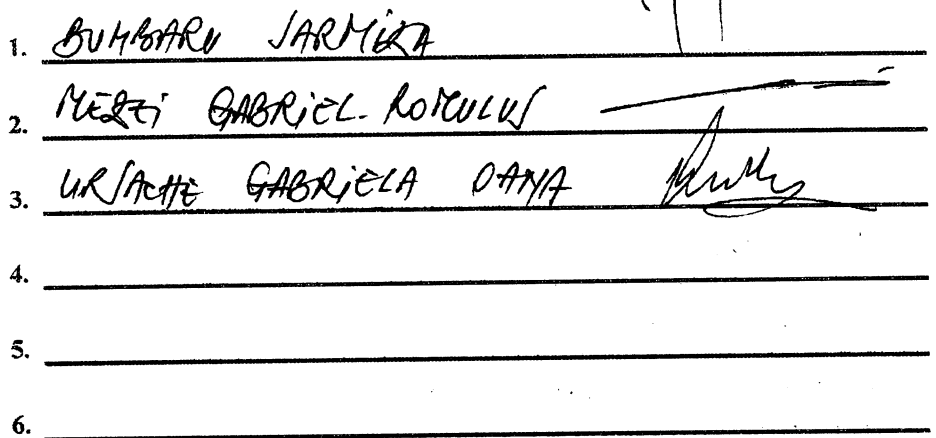 1. BUMBARU SARMIZA
2. MERZI GABRIEL-ROMULUS
3. URSACHE GABRIELA DANA
4.
5.
6.